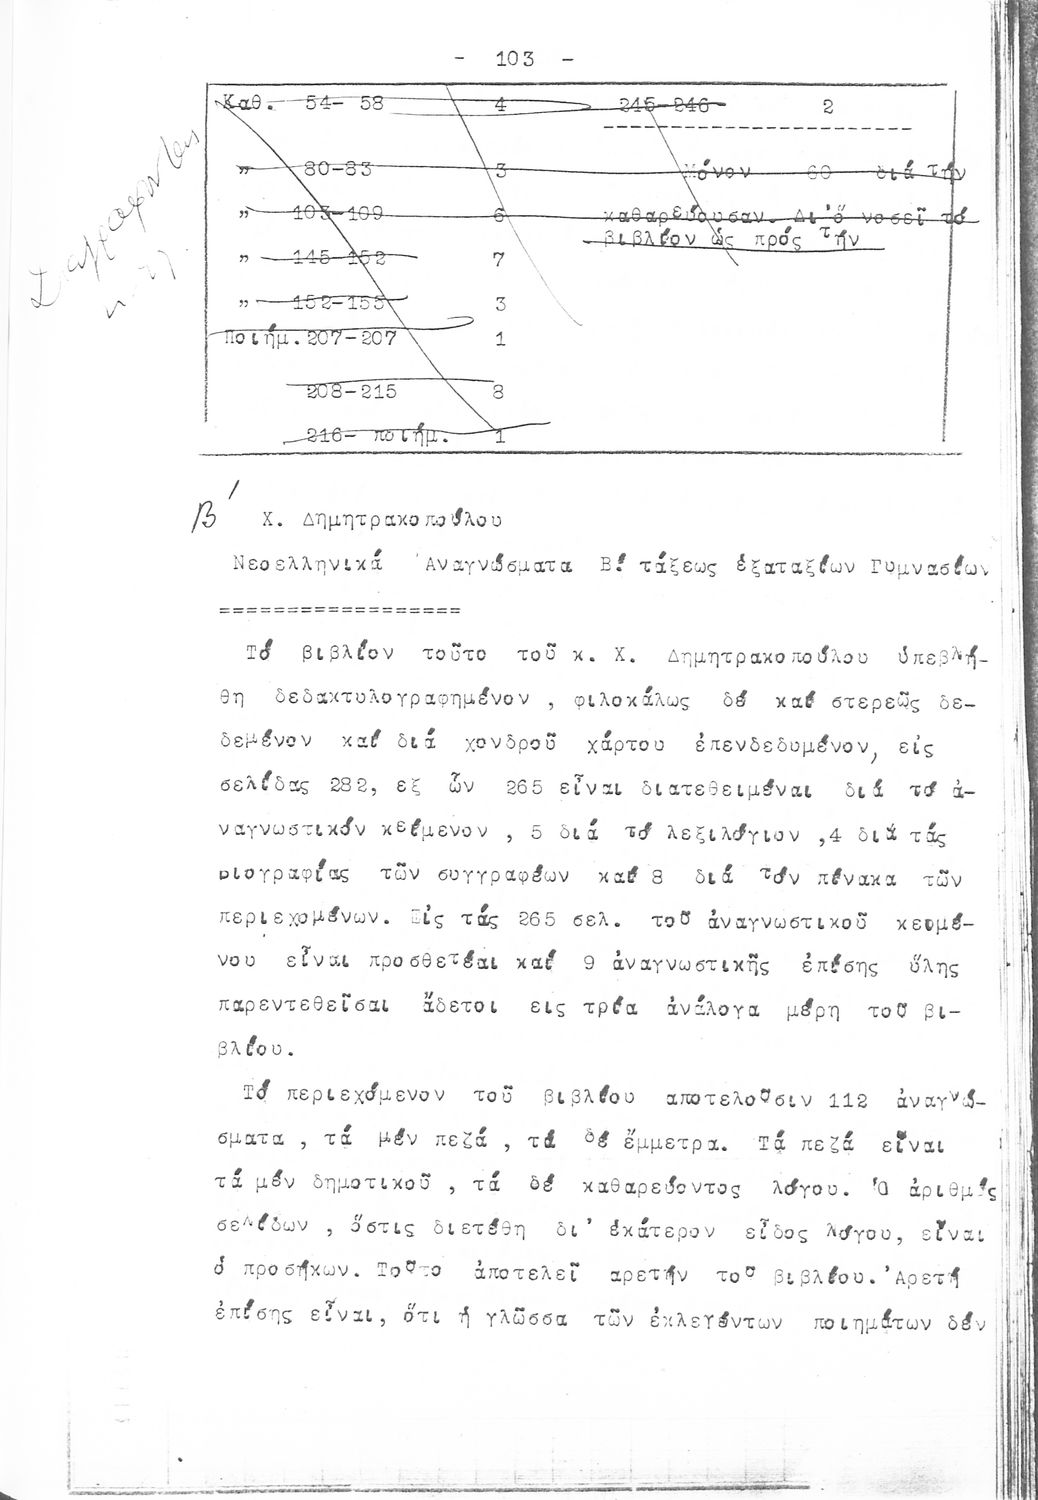 - 103 -
Καθ. 54- 58 4 245-246 2
" 80-83 3 Μόνον 60 διά τήν
" 103-109 6 καθαρεύουσαν. Δι'ὅ νοσεῖ τό
βιβλίον ὡς πρός τήν
" 145-152 7
" 152-155 3
Ποιήμ. 207-207 1
208-215 8
216- ποιήμ. 1
Β' Χ. Δημητρακοπούλου
Νεοελληνικά Ἀναγνώσματα Β' τάξεως ἑξαταξίων Γυμνασίων
==================
Τό βιβλίον τοῦτο τοῦ κ. Χ. Δημητρακοπούλου ὑπεβλή-
θη δεδακτυλογραφημένον , φιλοκάλως δέ καί στερεῶς δε-
δεμένον καί διά χονδροῦ χάρτου ἐπενδεδυμένον, εἰς
σελίδας 282, εξ ὧν 265 εἶναι διατεθειμέναι διά τό ἀ-
ναγνωστικόν κείμενον , 5 διά τό λεξιλόγιον ,4 διά τάς
βιογραφίας τῶν συγγραφέων καί 8 διά τόν πίνακα τῶν
περιεχομένων. Εἰς τάς 265 σελ. τοῦ ἀναγνωστικοῦ κειμέ-
νου εἶναι προσθετέαι καί 9 ἀναγνωστικῆς ἐπίσης ὕλης
παρεντεθεῖσαι ἄδετοι εις τρία ἀνάλογα μέρη τοῦ βι-
βλίου.
Τό περιεχόμενον τοῦ βιβλίου αποτελοῦσιν 112 ἀναγνώ-
σματα , τά μέν πεζά , τά δέ ἔμμετρα. Τά πεζά εἶναι
τά μέν δημοτικοῦ , τά δέ καθαρεύοντος λόγου. Ὁ ἀριθμός
σελίδων , ὅστις διετέθη δι' ἑκάτερον εἶδος λόγου, εἶναι
ὁ προσήκων. Τοῦτο ἀποτελεῖ αρετήν τοῦ βιβλίου. Ἀρετή
ἐπίσης εἶναι, ὅτι ἡ γλῶσσα τῶν ἐκλεγέντων ποιημάτων δέν